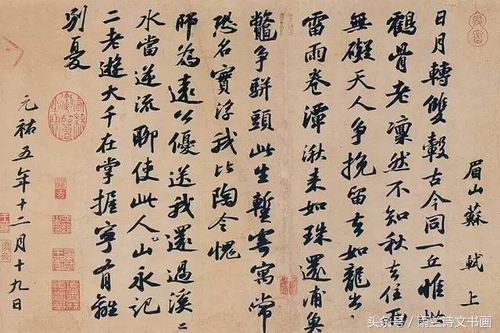 眉山蘇軾上
日月轉雙轂古今同一丘惟此
鶴骨老凜然不知秋去住兩
無礙天人爭挽留去如龍出山
雷雨卷潭湫來如珠還浦魚
鱉爭駢頭此生暫寄寓常
恐名實浮我比陶令愧
師為遠公優送我還過溪〻
水當逆流聊使此人山永記
二老遊大千在掌握寧有離
別憂
元祐五年十二月十九日
头条号 / 诗文书画